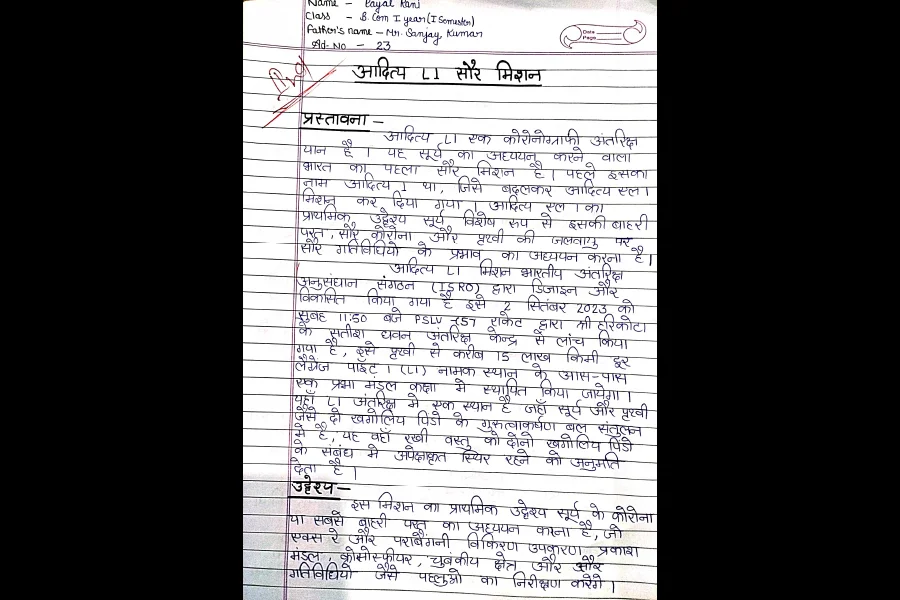 Name - Payal Rani
Class - B.Com I year (I Semester)
Father's name - Mr. Sanjay Kumar
Ad. No - 23
Date
Page
आदित्य L1 सौर मिशन
प्रस्तावना -
आदित्य L1 एक कोरोनोग्राफी अंतरिक्ष
यान है । यह सूर्य का अध्ययन करने वाला
भारत का पहला सौर मिशन है। पहले इसका
नाम आदित्य 1 था, जिसे बदलकर आदित्य एल 1
मिशन कर दिया गया । आदित्य एल 1 का
प्राथमिक उद्देश्य सूर्य विशेष रूप से इसकी बाहरी
परत, सौर कोरोना और पृथ्वी की जलवायु पर
सौर गतिविधियो के प्रभाव का अध्ययन करना है।
आदित्य L1 मिशन भारतीय अंतरिक्ष
अनुसंधान संगठन (ISRO) द्वारा डिजाइन और
विकसित किया गया है इसे 2 सितंबर 2023 को
सुबह 11:50 बजे PSLV C57 राकेट द्वारा श्री हरिकोटा
के सतीश धवन अंतरिक्ष केन्द्र से लांच किया
गया है, इसे पृथ्वी से करीब 15 लाख किमी दूर
लैंग्रेज पाइंट 1 (L1) नामक स्थान के आस-पास
एक प्रभा मंडल कक्षा मे स्थापित किया जायेगा ।
यहाँ L1 अंतरिक्ष मे एक स्थान है जहाँ सूर्य और पृथ्वी
जैसे दो खगोलिय पिंडो के गुरुत्वाकर्षण बल संतुलन
मे है, यह वहाँ रखी वस्तु को दोनो खगोलिय पिंडो
के संबंध मे अपेक्षाकृत स्थिर रहने की अनुमति
देता है ।
उद्देश्य -
इस मिशन का प्राथमिक उद्देश्य सूर्य के कोरोना
या सबसे बाहरी परत का अध्ययन करना है, जो
एक्स रे और पराबैंगनी विकिरण उपकरण प्रकाश
मंडल, क्रोमोस्फीयर, चुबंकीय क्षेत्र और सौर
गतिविधियो जैसे पहलुओ का निरीक्षण करेगे ।